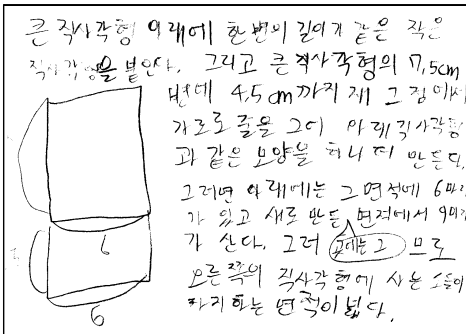 큰 직사각형 아래에 한 변의 길이가 같은 작은
직사각형을 붙인다. 그리고 큰 직사각형의 7.5cm
변에 4.5cm까지 재 그 점에서
가로로 줄을 그어 아래 직사각형
과 같은 모양을 하나 더 만든다.
그러면 아래에는 그 면적에 6마리
가 있고 새로 만든 면적에서 9마리
가 산다. 그러 므로
곳에는 그
오른쪽의 직사각형에 사는 소들이
차지하는 면적이 넓다.
6
6